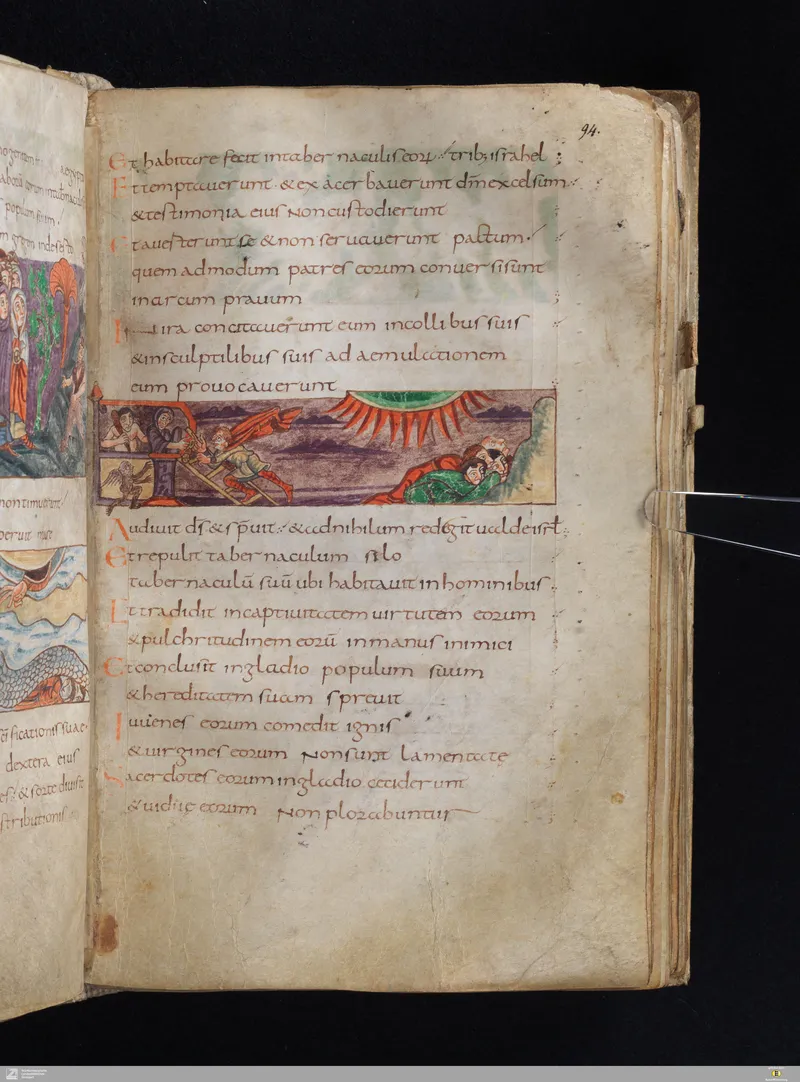 94.
Et habitare fecit in tabernaculis eorū trib; israhel
Et temptaverunt & exacerbaverunt dm̄ excelsum
& testimonia eius non custodierunt
Et averterunt se & non servaverunt pactum
quemadmodum patres eorum conversi sunt
in arcum pravum
In ira concitaverunt eum in collibus suis
& in sculptilibus suis ad aemulationem
eum provocaverunt
Audivit ds̄ & sprevit & ad nihilum redegit valde isrł
Et repulit tabernaculum silo
tabernaculū suū ubi habitavit in hominibus
Et tradidit in captivitatem virtutem eorum
& pulchritudinem eorū in manus inimici
Et conclusit in gladio populum suum
& hereditatem suam sprevit
Iuvenes eorum comedit ignis
& virgines eorum non sunt lamentate
Sacerdotes eorum in gladio ceciderunt
& vidue eorum non plorabuntur